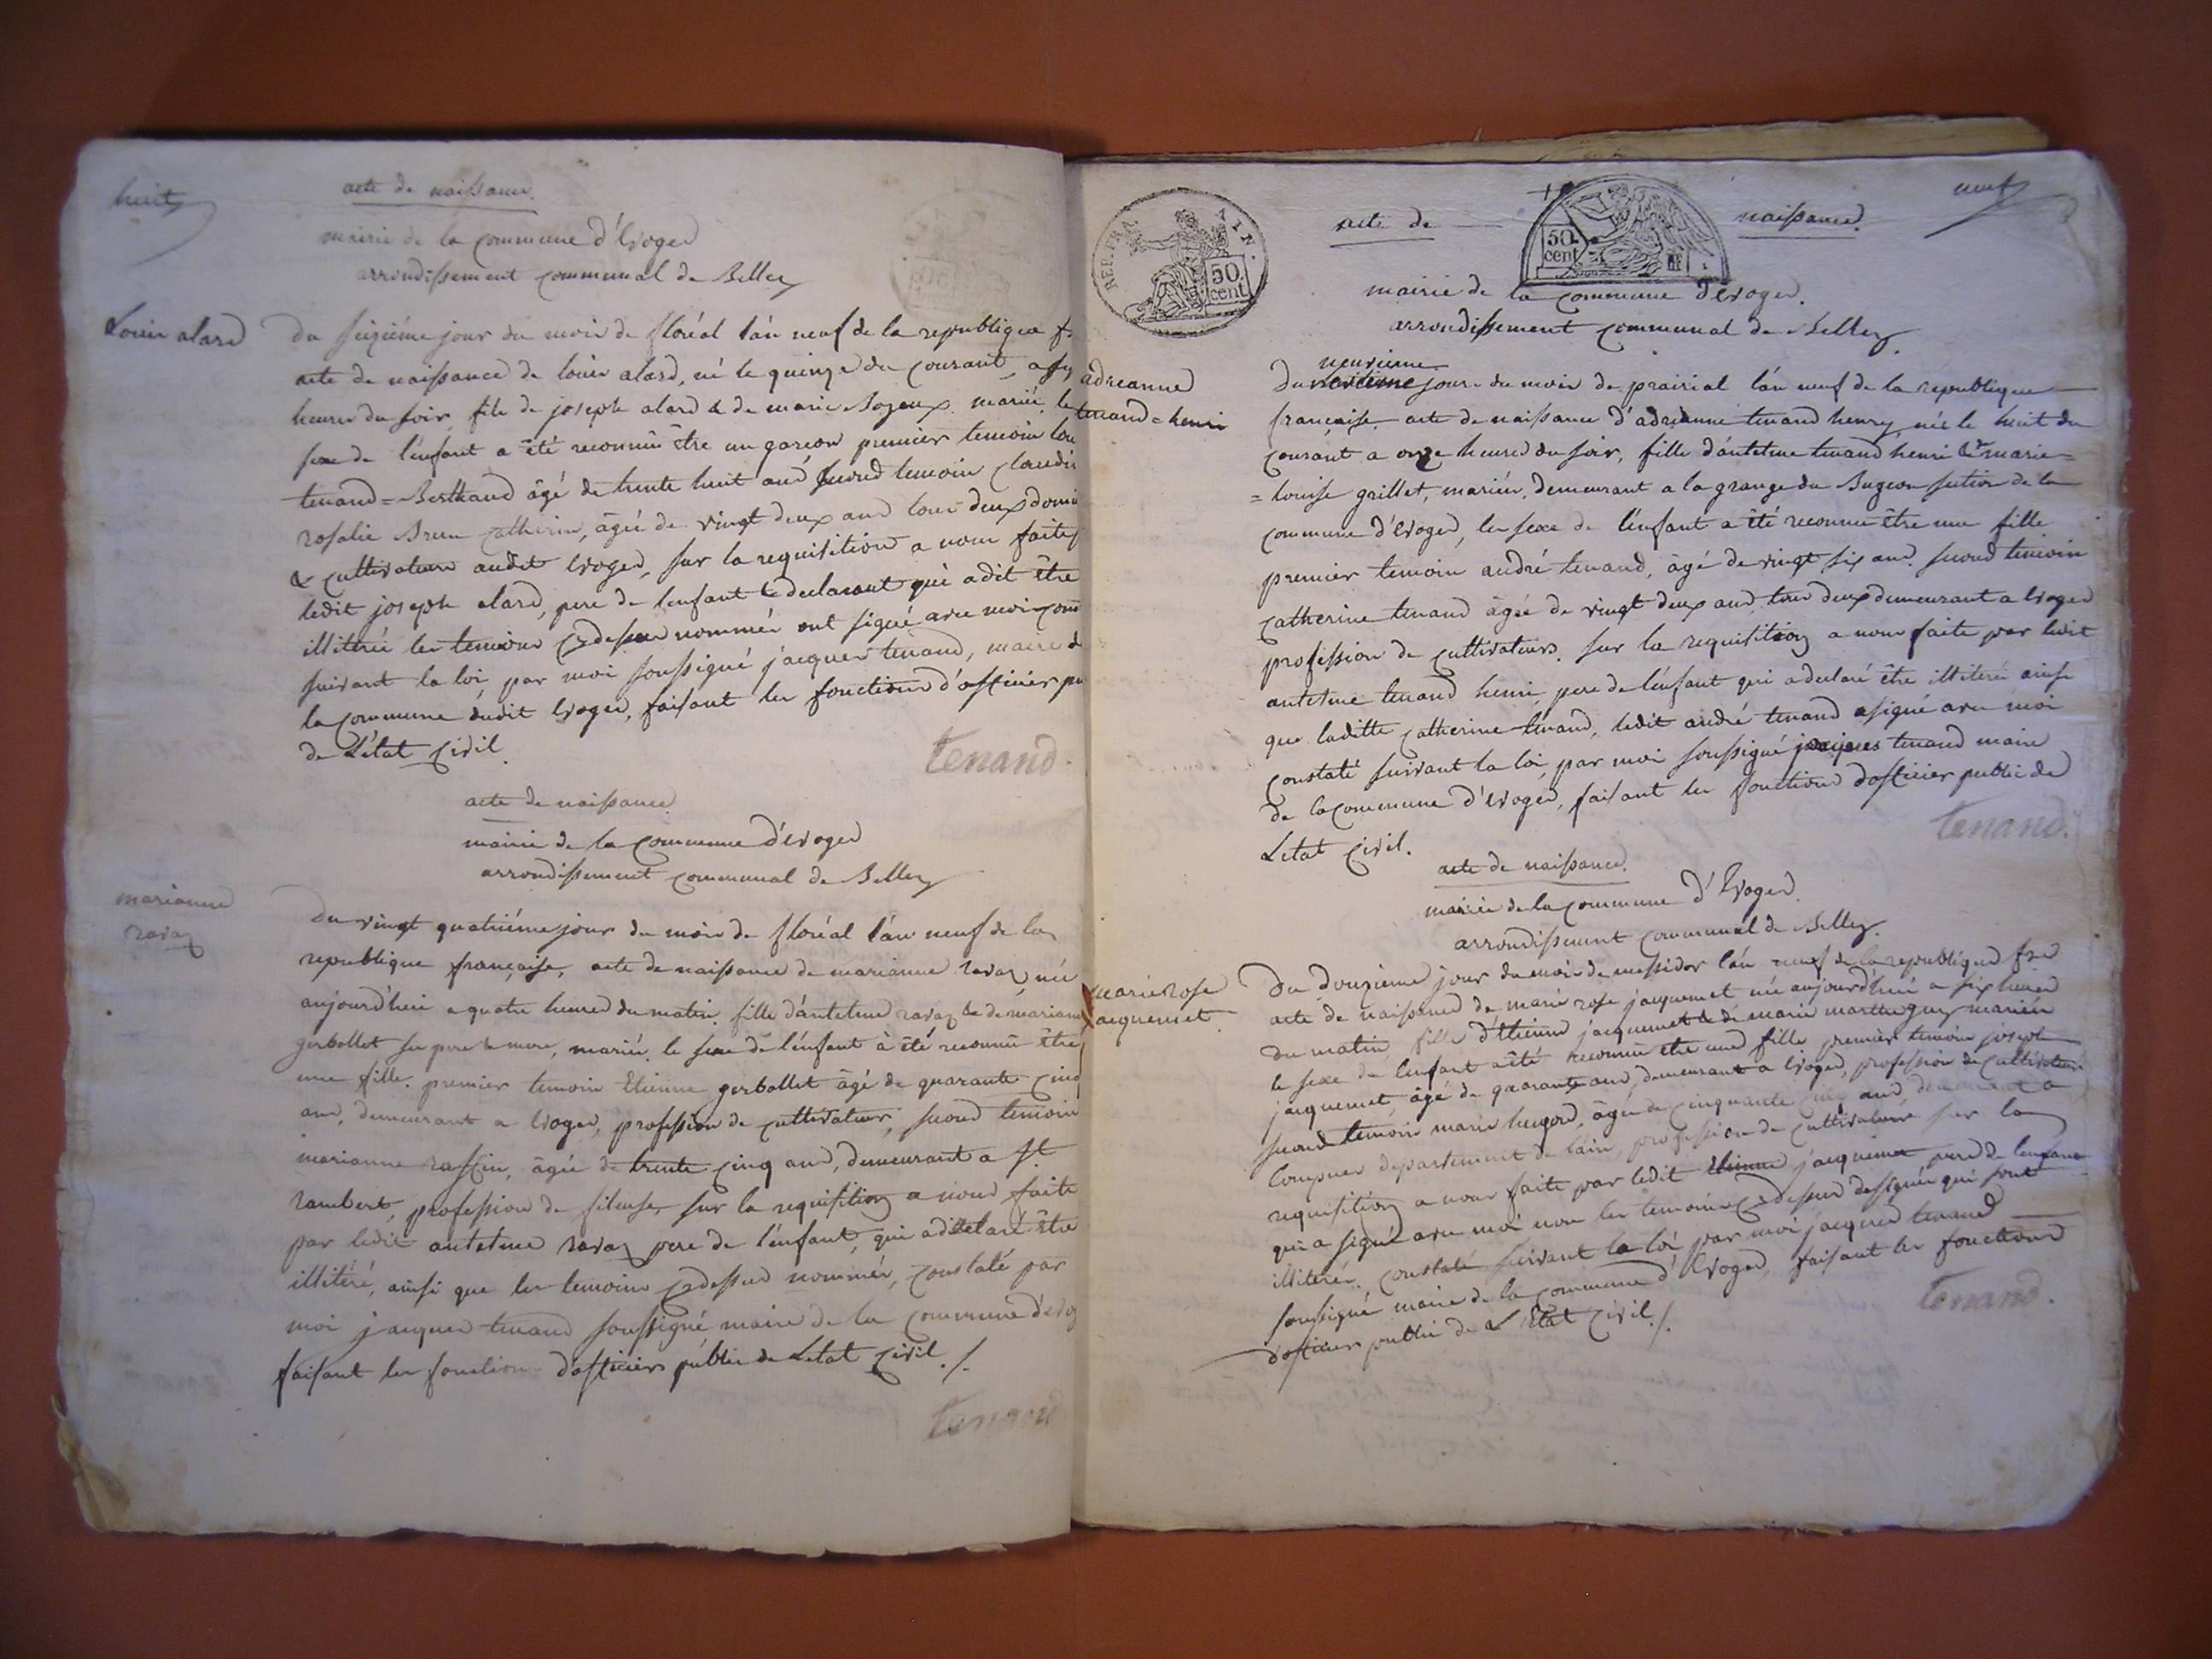 huit
acte de naissance
mairie de la commune d'Evoges
arrondissement communal de Belley
Louis alard
Du seizième jour du mois de floréal l'an neuf de la republique
acte de naissance de louis alard, né le quinze du courant, a
heures du soir, fils de joseph alard & de marie mariés, le
sexe de l'enfant a été reconnû être un garçon premier temoin
tenand=Berthaud âgé de trente huit ans second temoin
rosalie Brun catherin, âgée de vingt deux ans tous deux
& cultivateurs audit Evoges, sur la requisition a nous faite
ledit joseph alard, pere de l'enfant & declarant qui a dit être
illitéré les temoins cydessus nommés ont signé avec moi
suivant la loi, par moi soussigné jacques tenand, maire
la commune dudit Evoges, faisant les fonctions d'officier
de L'état civil.
tenand.
acte de naissance
mairie de la commune d'Evoges
arrondissement communal de Belley
marianne
ravaz
Du vingt quatriéme jour du mois de floréal l'an neuf de la
republique française, acte de naissance de marianne ravaz, née
aujourd'hui a quatre heures du matin, fille d'antelme ravaz & de
gerbollet ses pere & mere, mariés, le sexe de l'enfant à été reconnû être
une fille. premier temoin Etienne gerbollet âgé de quarante cinq
ans, demeurant a Evoges, profession de cultivateur, second temoin
marianne, âgée de trente cinq ans, demeurant a St
rambert, profession de fileuse, sur la requisition a nous faite
par ledit antelme ravaz pere de l'enfant, qui a déclaré être
illitéré, ainsi que les temoins cydessus nommés, constaté par
moi jacques tenand soussigné maire de la commune
faisant les fonctions d'officier public de Letat civil ./.
tenand
neuf
REP. FRA. AIN.
50 cent
50. cent
acte de naissance
mairie de la commune d'Evoges.
arrondissement communal de Belley.
adreanne
tenand=henri
neuvieme
Du jour du mois de prairial l'an neuf de la republique
française, acte de naissance d'adreanne tenand henry, née le huit du
courant a onze heures du soir, fille d'antelme tenand henri & marie=
=louise grillet, mariés, demeurant a la grange du Bugeon section de la
commune d'Evoges, le sexe de l'enfant a été reconnu être une fille
premier temoin andré tenand, âgé de vingt six ans. second temoin
catherine tenand âgée de vingt deux ans tous deux demeurant a Evoges
profession de cultivateurs. sur la requisition a nous faite par ledit
antelme tenand henri, pere de l'enfant qui a declaré être illitéré ainsi
que laditte catherine tenand, ledit andré tenand a signé avec moi
constaté suivant la loi, par moi soussigné jacques tenand maire
de la commune d'Evoges, faisant les fonctions d'officier public de
Letat civil.
tenand.
acte de naissance.
mairie de la commune d'Evoges.
arrondissement communal de Belley.
marie rose
jacquemet
Du douzieme jour du mois de messidor l'an neuf de la republique
acte de naissance de marie rose jacquemet née aujourd'hui a six heures
du matin, fille d'etienne jacquemet & de marie marthe guy mariés
le sexe de l'enfant a été reconnu etre une fille premier temoin joseph
jacquemet, âgé de quarante ans, demeurant a Evoges, profession de cultivateur
second temoin marie, âgée de cinquante cinq ans, demeurant a
departement de l'ain, profession de cultivateur sur la
requisition a nous faite par ledit Etienne jacquemet pere de l'enfant
qui a signé avec moi non les temoins cydessus designés qui sont
illiterés. constaté suivant la loi par moi jacques tenand
soussigné maire de la commune d'Evoges, faisant les fonctions
d'officier public de L'Etat civil ./.
tenand.